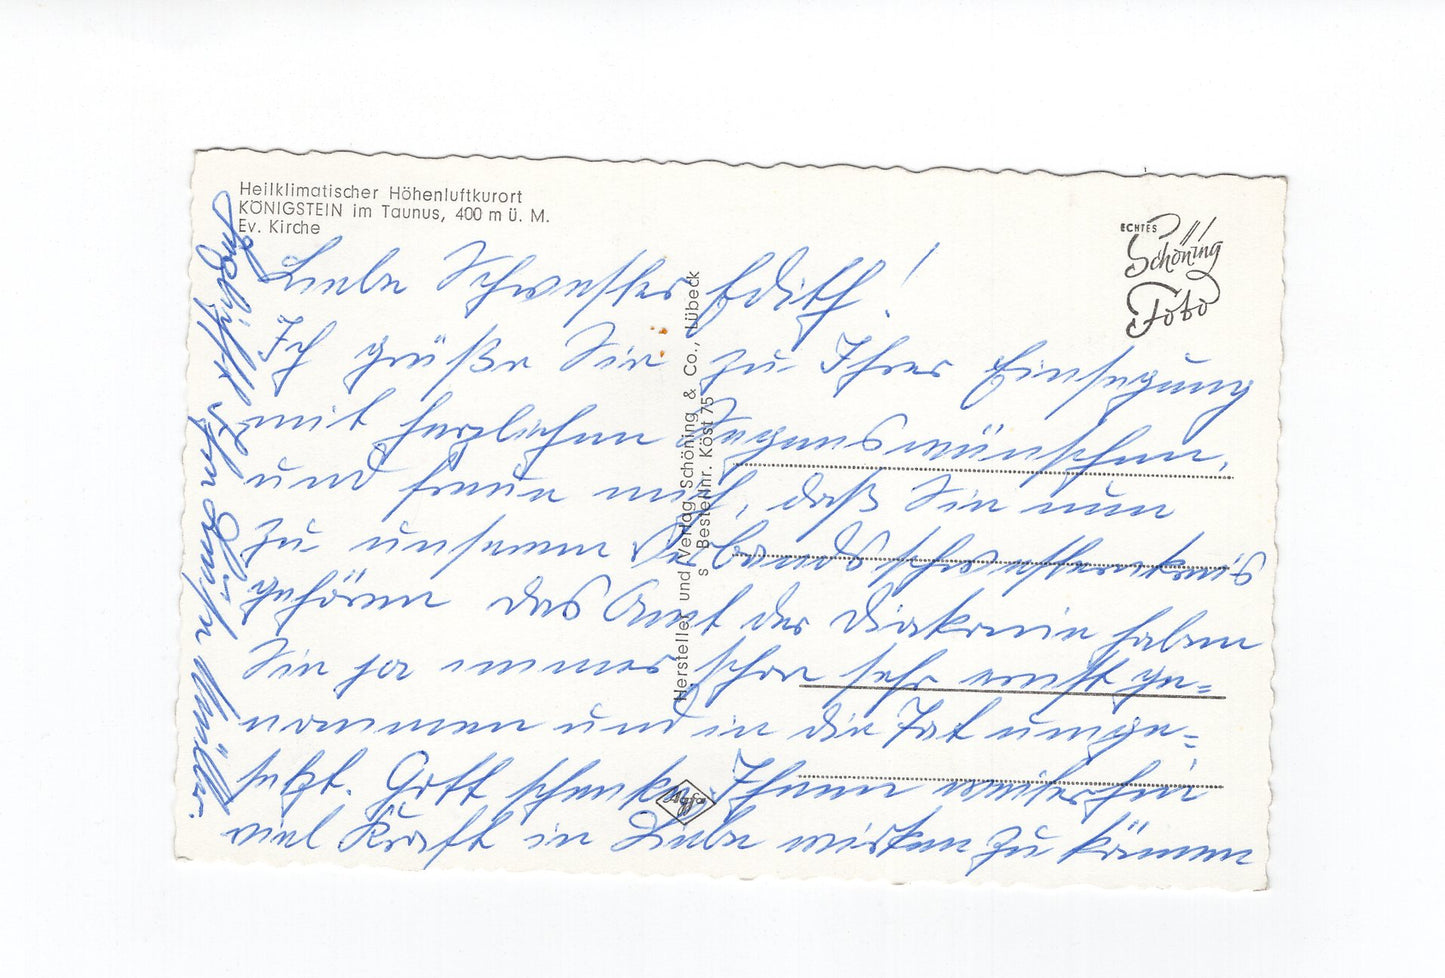 Heilklimatischer Höhenluftkurort
KÖNIGSTEIN im Taunus, 400 m ü. M.
Ev. Kirche
ECHTES
Schöning
Foto
Liebe Schwester Edith!
Ich grüße Sie zu Ihrer Einsegnung
mit herzlichen Segenswünschen,
und freue mich, daß Sie nun
zu unserem Verbandsschwesternkreis
gehören. Das Amt der Diakonie haben
Sie ja immer schon sehr ernst ge=
nommen und in die Tat umge=
setzt. Gott schenke Ihnen weiterhin
viel Kraft in Liebe wirken zu können
Ihre Müller.
Hersteller und Verlag Schöning & Co., Lübeck
s Bestellnr. Köst 75